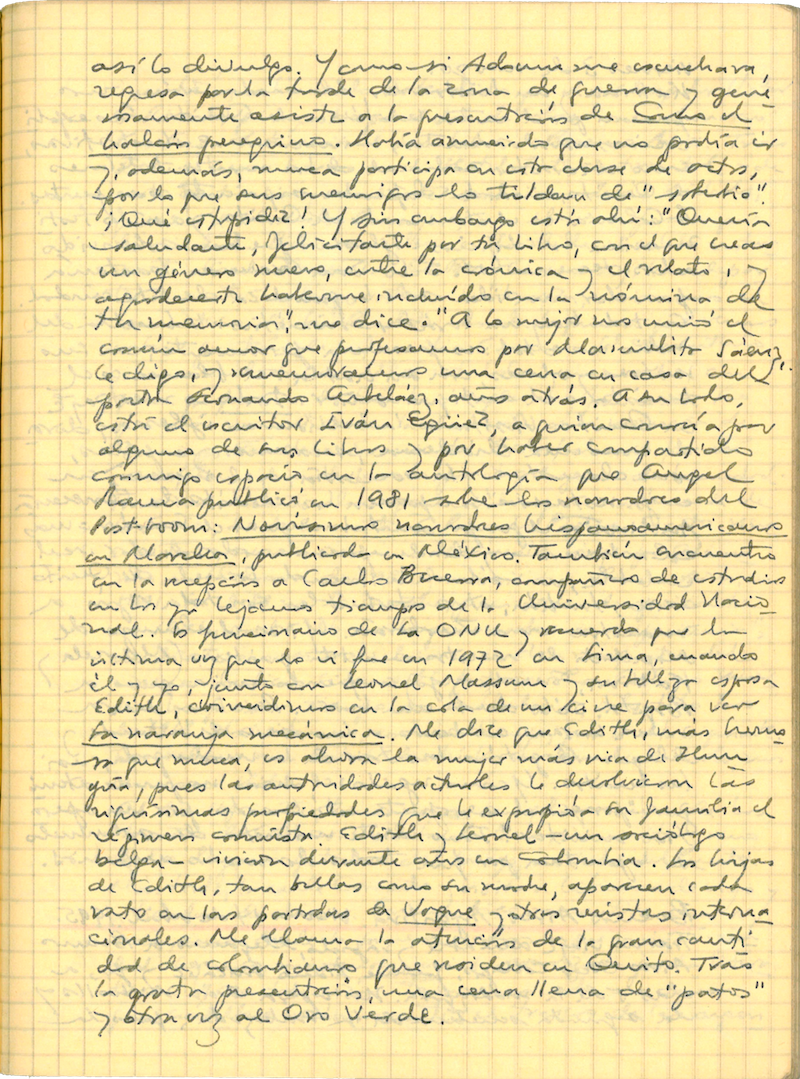 así lo divulgo. Y como si Adoum me escuchara,
regresa por la tarde de la zona de guerra y gene
rosamente asiste a la presentación de Como el
halcón peregrino. Había anunciado que no podía ir
y, además, nunca participa en esta clase de actos,
por lo que sus enemigos lo tildan de "soberbio".
¡Qué estupidez! Y sin embargo está ahí: "Quería
saludarte, felicitarte por tu libro, con el que creas
un género nuevo, entre la crónica y el relato, y
agradecerte haberme incluido en la nómina de
tu memoria", me dice. "A lo mejor nos unió el
común amor que profesamos por Manuelita Sáenz",
le digo, y rememoramos una cena en casa del
poeta Fernando Arbeláez, años atrás. A su lado,
está el escritor Iván Egüez, a quien conocía por
alguno de sus libros y por haber compartido
conmigo espacio en la antología que Angel
Rama publicó en 1981 sobre los narradores del
Post-boom: Novísimos narradores hispanoamericanos
en Marcha, publicada en México. También encuentro
en la recepción a Carlos Becerra, compañero de estudios
en los ya lejanos tiempos de la Universidad Nacio-
nal. Es funcionario de la ONU y recuerda que la
última vez que lo vi fue en 1972 en Lima, cuando
él y yo, junto con Leonel Massun y su bella esposa
Edith, coincidimos en la cola de un cine para ver
La naranja mecánica. Me dice que Edith, más hermo-
sa que nunca, es ahora la mujer más rica de Hun
gría, pues las autoridades actuales le devolvieron las
riquísimas propiedades que le expropió a su familia el
régimen comunista. Edith y Leonel -un sociólogo
belga- vivieron durante años en Colombia. Las hijas
de Edith, tan bellas como su madre, aparecen cada
rato en las portadas de Vogue y otras revistas interna-
cionales. Me llama la atención de la gran canti
dad de colombianos que residen en Quito. Tras
la grata presentación, una cena llena de "patos"
y otra vez al Oro Verde.